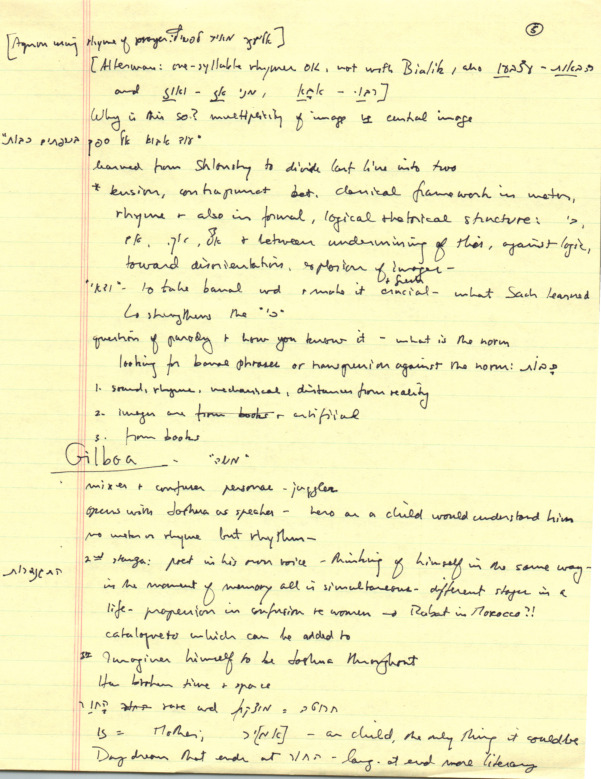 5
[Agnon using rhyme of prayer:
[Alterman: one-syllable rhymes OK, not with Bialik, also
and
Why is this so? multiplicity of image vs central image
learned from Shlonsky to divide last line into two
* tension, contrapunct bet. classical framework in meter,
rhyme + also in formal, logical rhetorical structure: כי,
+ between undermining of this, against logic,
toward disorientation, explosion of images -
- to take banal wd + make it crucial + fresh - what Sach learned
Lo strengthens the "כי"
question of parody + how you know it - what is the norm
looking for banal phrases or transgression against the norm:
1. sound, rhyme, mechanical, distances from reality
2. images are from books + artificial
3. from books
Gilboa - "משה"
mixes + confuses personae - juggler
opens with Joshua as speaker - hero as a child would understand him
no meter or rhyme but rhythm -
2nd stanza: poet in his own voice - thinking of himself in the same way -
in the moment of memory all is simultaneous - different stages in a
life - progression in confusion re women → Rabat in Morocco?!
catalogue to which can be added to
Imagines himself to be Joshua throughout
Has broken time + space
= rare wd
is = Mother; - as child, the only thing it could be
Daydream that ends at - lang. at end more literary